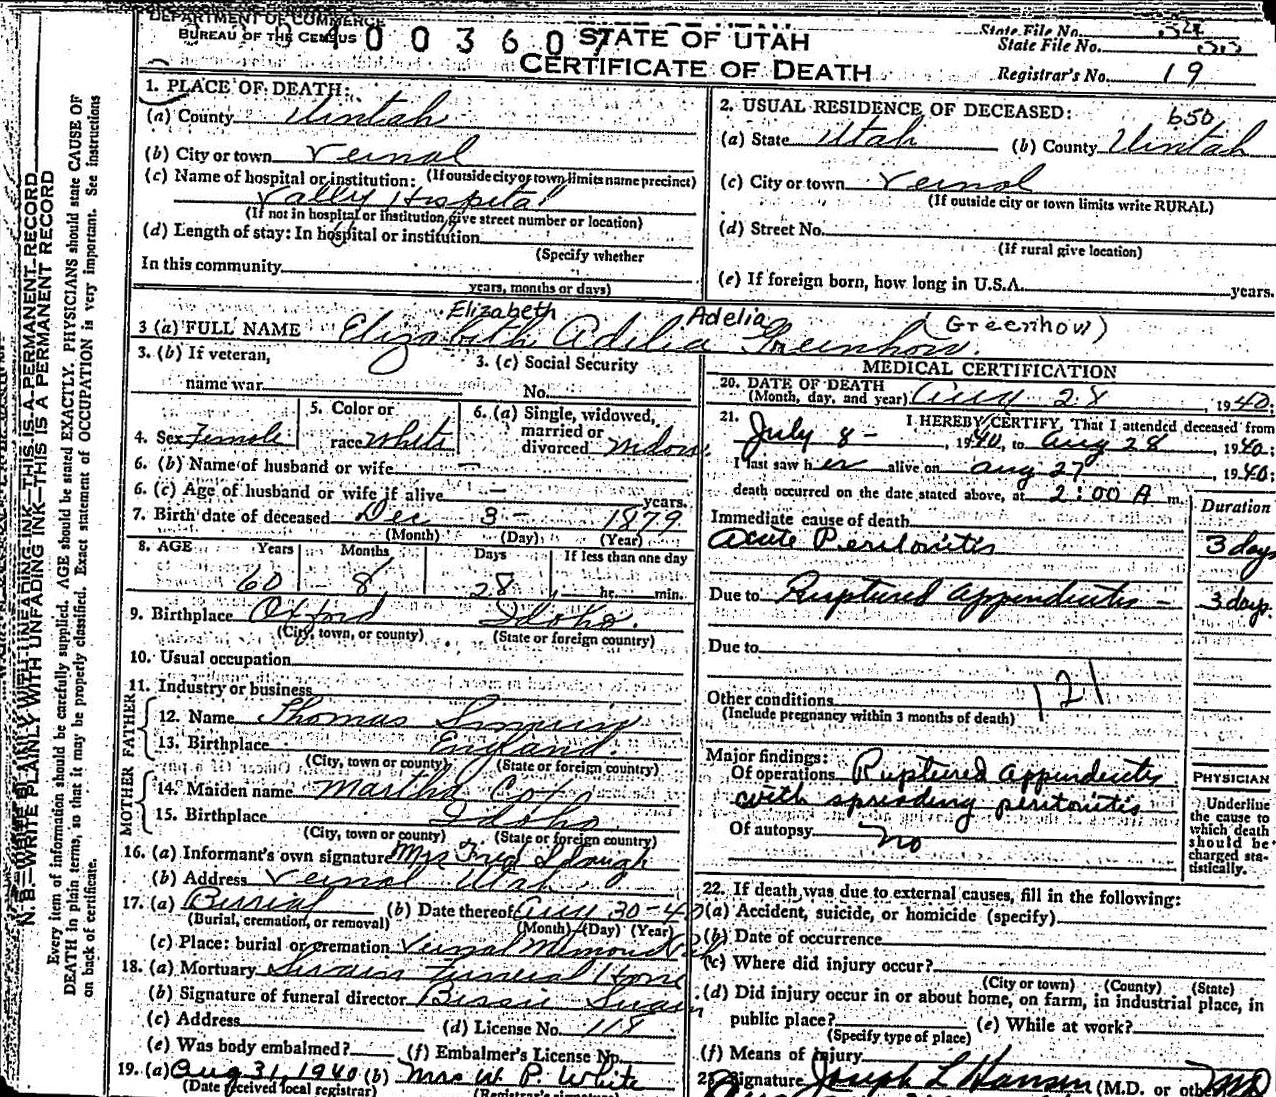 DEPARTMENT OF COMMERCE
BUREAU OF THE CENSUS
4003607
STATE OF UTAH
CERTIFICATE OF DEATH
State File No.
State File No.
Registrar's No. 19
1. PLACE OF DEATH:
(a) County Uintah
(b) City or town Vernal
(If outside city or town limits name precinct)
(c) Name of hospital or institution:
Vally Hospital
(If not in hospital or institution, give street number or location)
(d) Length of stay: In hospital or institution
(Specify whether
In this community
years, months or days)
2. USUAL RESIDENCE OF DECEASED: 650
(a) State Utah (b) County Uintah
(c) City or town Vernal
(If outside city or town limits write RURAL)
(d) Street No.
(If rural give location)
(e) If foreign born, how long in U.S.A. years.
Elizabeth Adelia (Greenhow)
3 (a) FULL NAME Elizabeth Adelia Greenhow.
3. (b) If veteran,
name war
3. (c) Social Security
No.
4. Sex Female
5. Color or
race White
6. (a) Single, widowed,
married or
divorced Widow
6. (b) Name of husband or wife —
6. (c) Age of husband or wife if alive — years.
7. Birth date of deceased Dec 3 - 1879
(Month) (Day) (Year)
8. AGE Years Months Days If less than one day
60 8 28 hr. min.
9. Birthplace Oxford Idaho.
(City, town, or county) (State or foreign country)
10. Usual occupation
11. Industry or business
FATHER
12. Name Thomas
13. Birthplace England.
(City, town or county) (State or foreign country)
MOTHER
14. Maiden name Martha Cox
15. Birthplace Idaho
(City, town or county) (State or foreign country)
16. (a) Informant's own signature Mrs Fred
(b) Address Vernal Utah
17. (a) Burial (b) Date thereof Aug 30-40
(Burial, cremation, or removal) (Month) (Day) (Year)
(c) Place: burial or cremation Vernal
18. (a) Mortuary Swain Funeral Home
(b) Signature of funeral director Bessie Swain
(c) Address (d) License No. 118
(e) Was body embalmed? (f) Embalmer's License No.
19. (a) Aug 31, 1940 (b) Mrs W. P. White
(Date received local registrar) (Registrar's signature)
MEDICAL CERTIFICATION
20. DATE OF DEATH
(Month, day, and year) Aug 28, 1940;
21. I HEREBY CERTIFY, That I attended deceased from
July 8 - 1940, to Aug 28, 1940;
I last saw her alive on Aug 27, 1940;
death occurred on the date stated above, at 2:00 A m.
Duration
Immediate cause of death
Acute Peritonitis 3 days
Due to Ruptured appendicitis - 3 days.
Due to
Other conditions 121
(Include pregnancy within 3 months of death)
Major findings:
Of operations Ruptured appendicitis
with spreading peritonitis
Of autopsy no
PHYSICIAN
Underline
the cause to
which death
should be
charged sta-
tistically.
22. If death was due to external causes, fill in the following:
(a) Accident, suicide, or homicide (specify)
(b) Date of occurrence
(c) Where did injury occur?
(City or town) (County) (State)
(d) Did injury occur in or about home, on farm, in industrial place, in
public place? (e) While at work?
(Specify type of place)
(f) Means of injury
23. Signature Joseph L Hansen (M.D. or other) MD
N. B.—WRITE PLAINLY WITH UNFADING INK—THIS IS A PERMANENT RECORD
Every item of information should be carefully supplied. AGE should be stated EXACTLY. PHYSICIANS should state CAUSE OF
DEATH in plain terms, so that it may be properly classified. Exact statement of OCCUPATION is very important. See instructions
on back of certificate.